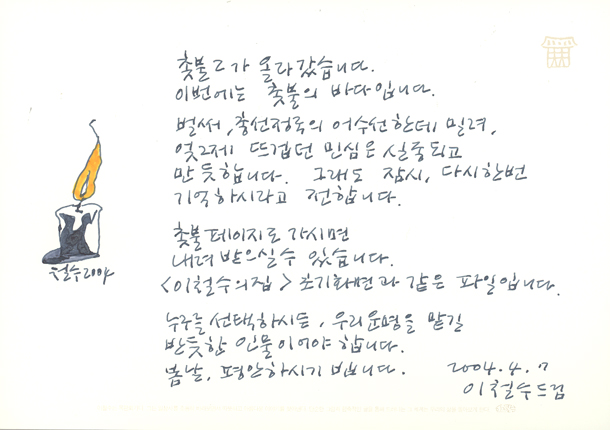 촛불 2가 올라갔습니다.
이번에는 촛불의 바다입니다.
벌써, 총선정국의 어수선한데 밀려,
엊그제 뜨겁던 민심은 실종되고
만 듯합니다. 그래도 잠시, 다시한번
기억하시라고 전합니다.
촛불 페이지로 가시면
내려 받으실 수 있습니다.
<이철수의 집> 초기화면과 같은 파일입니다.
누구를 선택하시든, 우리 운명을 맡길
반듯한 인물이어야 합니다.
봄날, 평안하시기 빕니다. 2004.4.7
이철수 드림
철수2004